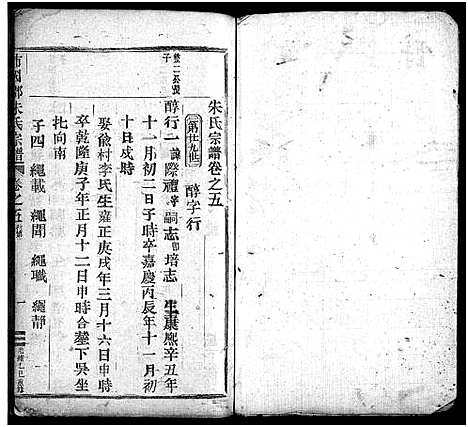 朱氏宗譜卷之五
第廿九世 醇字行
整二公長子
醇行二諱際禮字嗣志號培志 生康熙辛丑年
十一月初二日子時卒嘉慶丙辰年十一月初
十日戌時
娶俞村李氏生雍正庚戌年三月十六日申時
卒乾隆庚子年正月十二日申時合塟下吳坐
北向南
子四 繩載 繩聞 繩職 繩靜
朱氏宗譜 卷之五
一